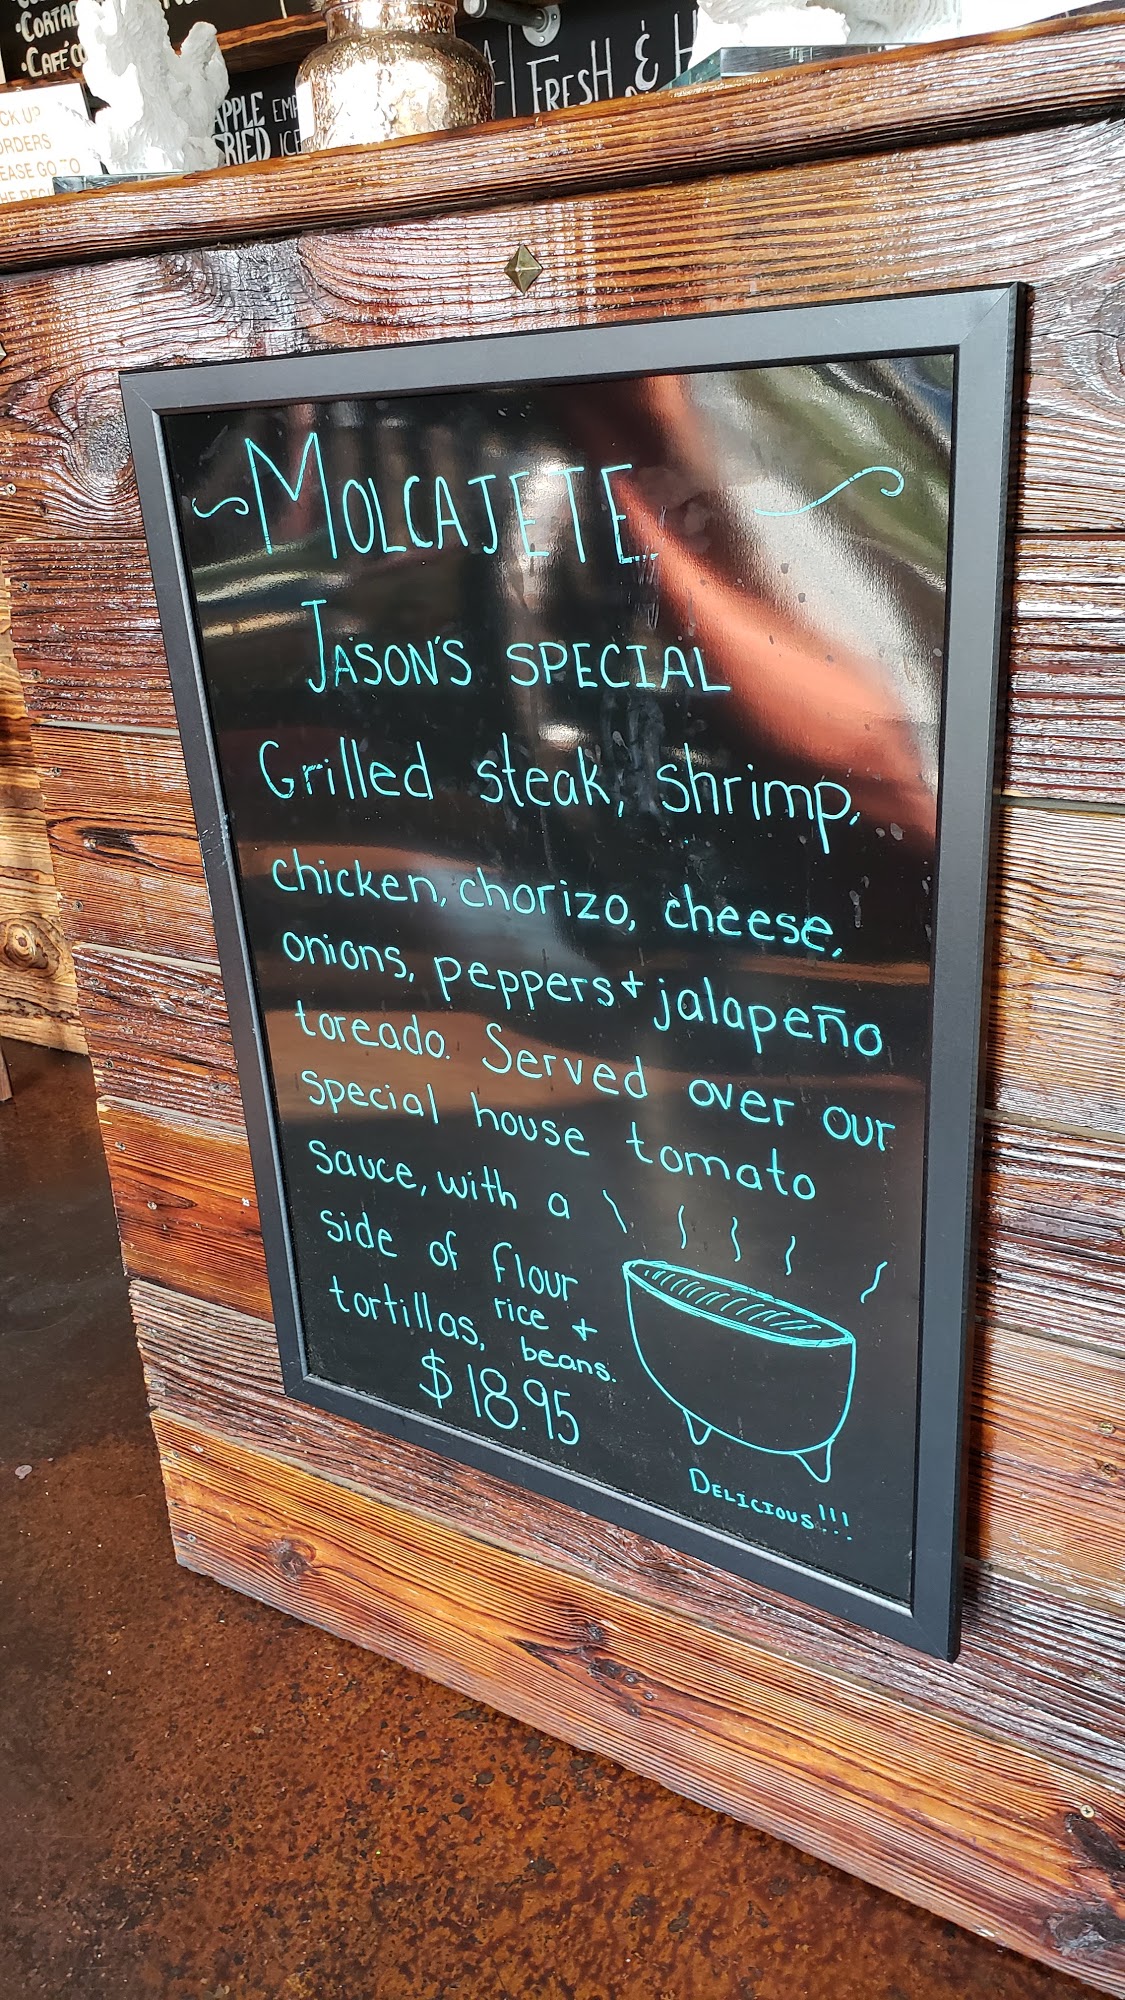 CORTAD
•CAFÉ CO
APPLE EMP
FRIED ICE
FRESH & H
CK UP
ORDERS
EASE GO TO
MOLCAJETE
JASON'S SPECIAL
Grilled steak, shrimp,
chicken, chorizo, cheese,
onions, peppers + jalapeño
toreado. Served over our
special house tomato
sauce, with a
side of flour
tortillas, rice +
beans.
$18.95
DELICIOUS!!!